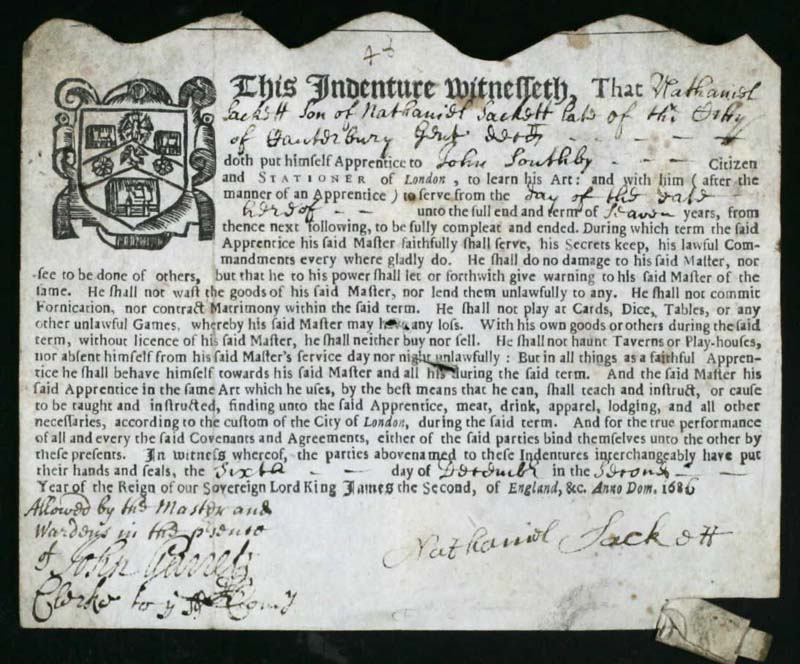 43
This Indenture Witnesseth, That Nathaniel
Sackett Son of Nathaniel Sackett late of the City
of Canterbury Gent decd - - - - -
doth put himself Apprentice to John Southby - - - Citizen
and STATIONER of London, to learn his Art: and with him (after the
manner of an Apprentice) to serve from the day of the date
hereof - - unto the full end and term of Seaven years, from
thence next following, to be fully compleat and ended. During which term the said
Apprentice his said Maſter faithfully ſhall ſerve, his Secrets keep, his lawful Com-
mandments every where gladly do. He ſhall do no damage to his ſaid Maſter, nor
ſee to be done of others, but that he to his power ſhall let or forthwith give warning to his ſaid Maſter of the
ſame. He ſhall not waſt the goods of his ſaid Maſter, nor lend them unlawfully to any. He ſhall not commit
Fornication, nor contract Matrimony within the ſaid term. He ſhall not play at Cards, Dice, Tables, or any
other unlawful Games, whereby his ſaid Maſter may have any loſs. With his own goods or others during the ſaid
term, without licence of his ſaid Maſter, he ſhall neither buy nor ſell. He ſhall not haunt Taverns or Play-houſes,
nor abſent himſelf from his ſaid Maſter's ſervice day nor night unlawfully: But in all things as a faithful Appren-
tice he ſhall behave himſelf towards his ſaid Maſter and all his during the ſaid term. And the ſaid Maſter his
ſaid Apprentice in the ſame Art which he uſes, by the beſt means that he can, ſhall teach and inſtruct, or cauſe
to be taught and inſtructed, finding unto the ſaid Apprentice, meat, drink, apparel, lodging, and all other
neceſſaries, according to the cuſtom of the City of London, during the ſaid term. And for the true performance
of all and every the ſaid Covenants and Agreements, either of the ſaid parties bind themſelves unto the other by
theſe preſents. In witneſs whereof, the parties abovenamed to theſe Indentures interchangeably have put
their hands and ſeals, the Sixth - - day of December in the Second - -
Year of the Reign of our Sovereign Lord King James the Second, of England, &c. Anno Dom. 1686
Allowed by the Master and
Wardens in the presence
of John Garrett
Clerke to y
Nathaniel Sackett